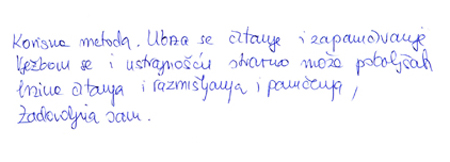 Korisna metoda. Ubrza se čitanje i zapamćivanje
Vježbom se i ustrajnošću stvarno može poboljšati
brzina čitanja i razmišljanja i pamćenja,
Zadovoljna sam.